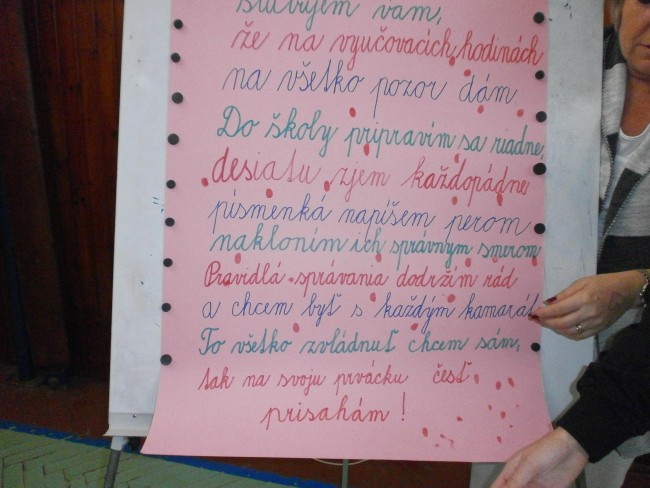 Sľubujem vám,
že na vyučovacích hodinách
na všetko pozor dám
Do školy pripravím sa riadne,
desiatu zjem každopádne
písmenká napíšem perom
nakloním ich správnym smerom
Pravidlá správania dodržím rád
a chcem byť s každým kamarát
To všetko zvládnuť chcem sám,
tak na svoju prvácku česť
prisahám!